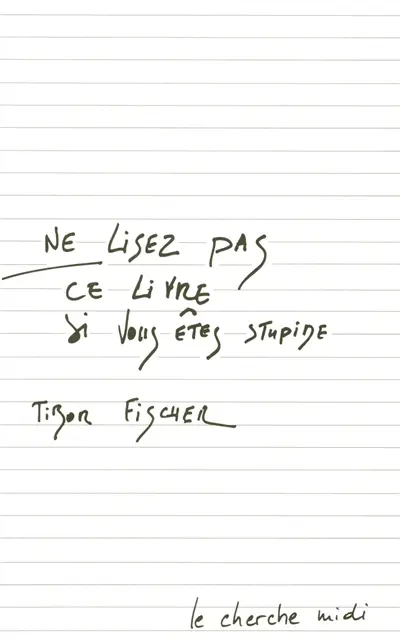 NE LiSEZ PAS
CE LiVRE
Si Vous êTES STUPiDE
TiBOR FiSCHER
le cherche midi